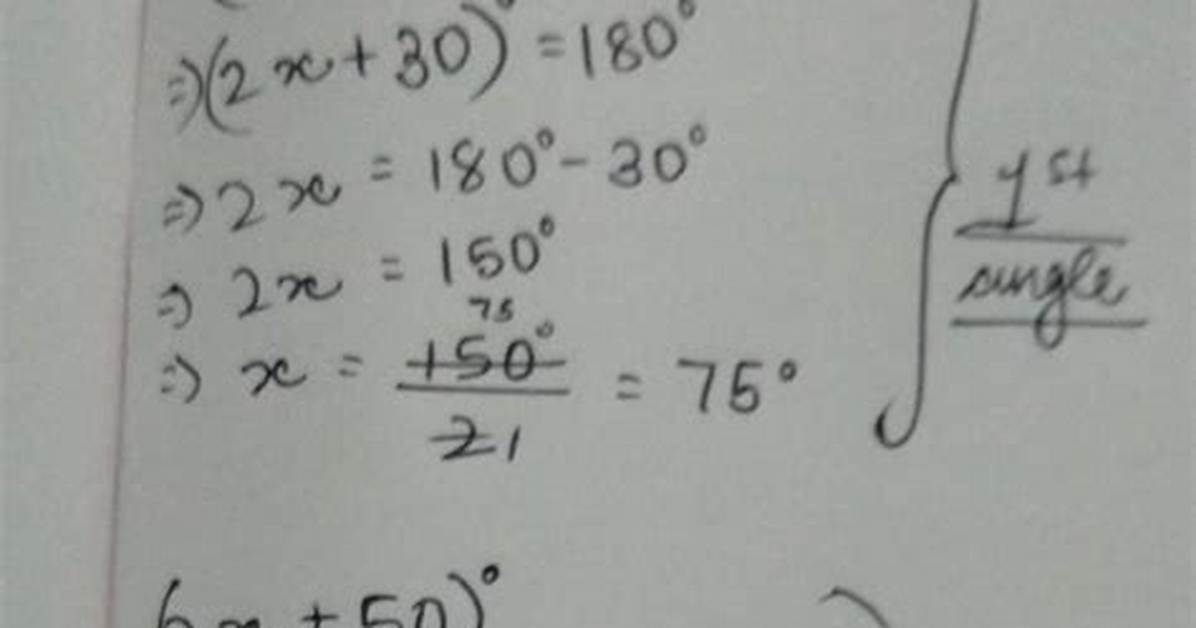 ⇒(2x+30)° = 180°
⇒ 2x = 180° - 30°
⇒ 2x = 150°
75
⇒ x = 150° / 2 1 = 75°
1st
angle
(x + 50)°